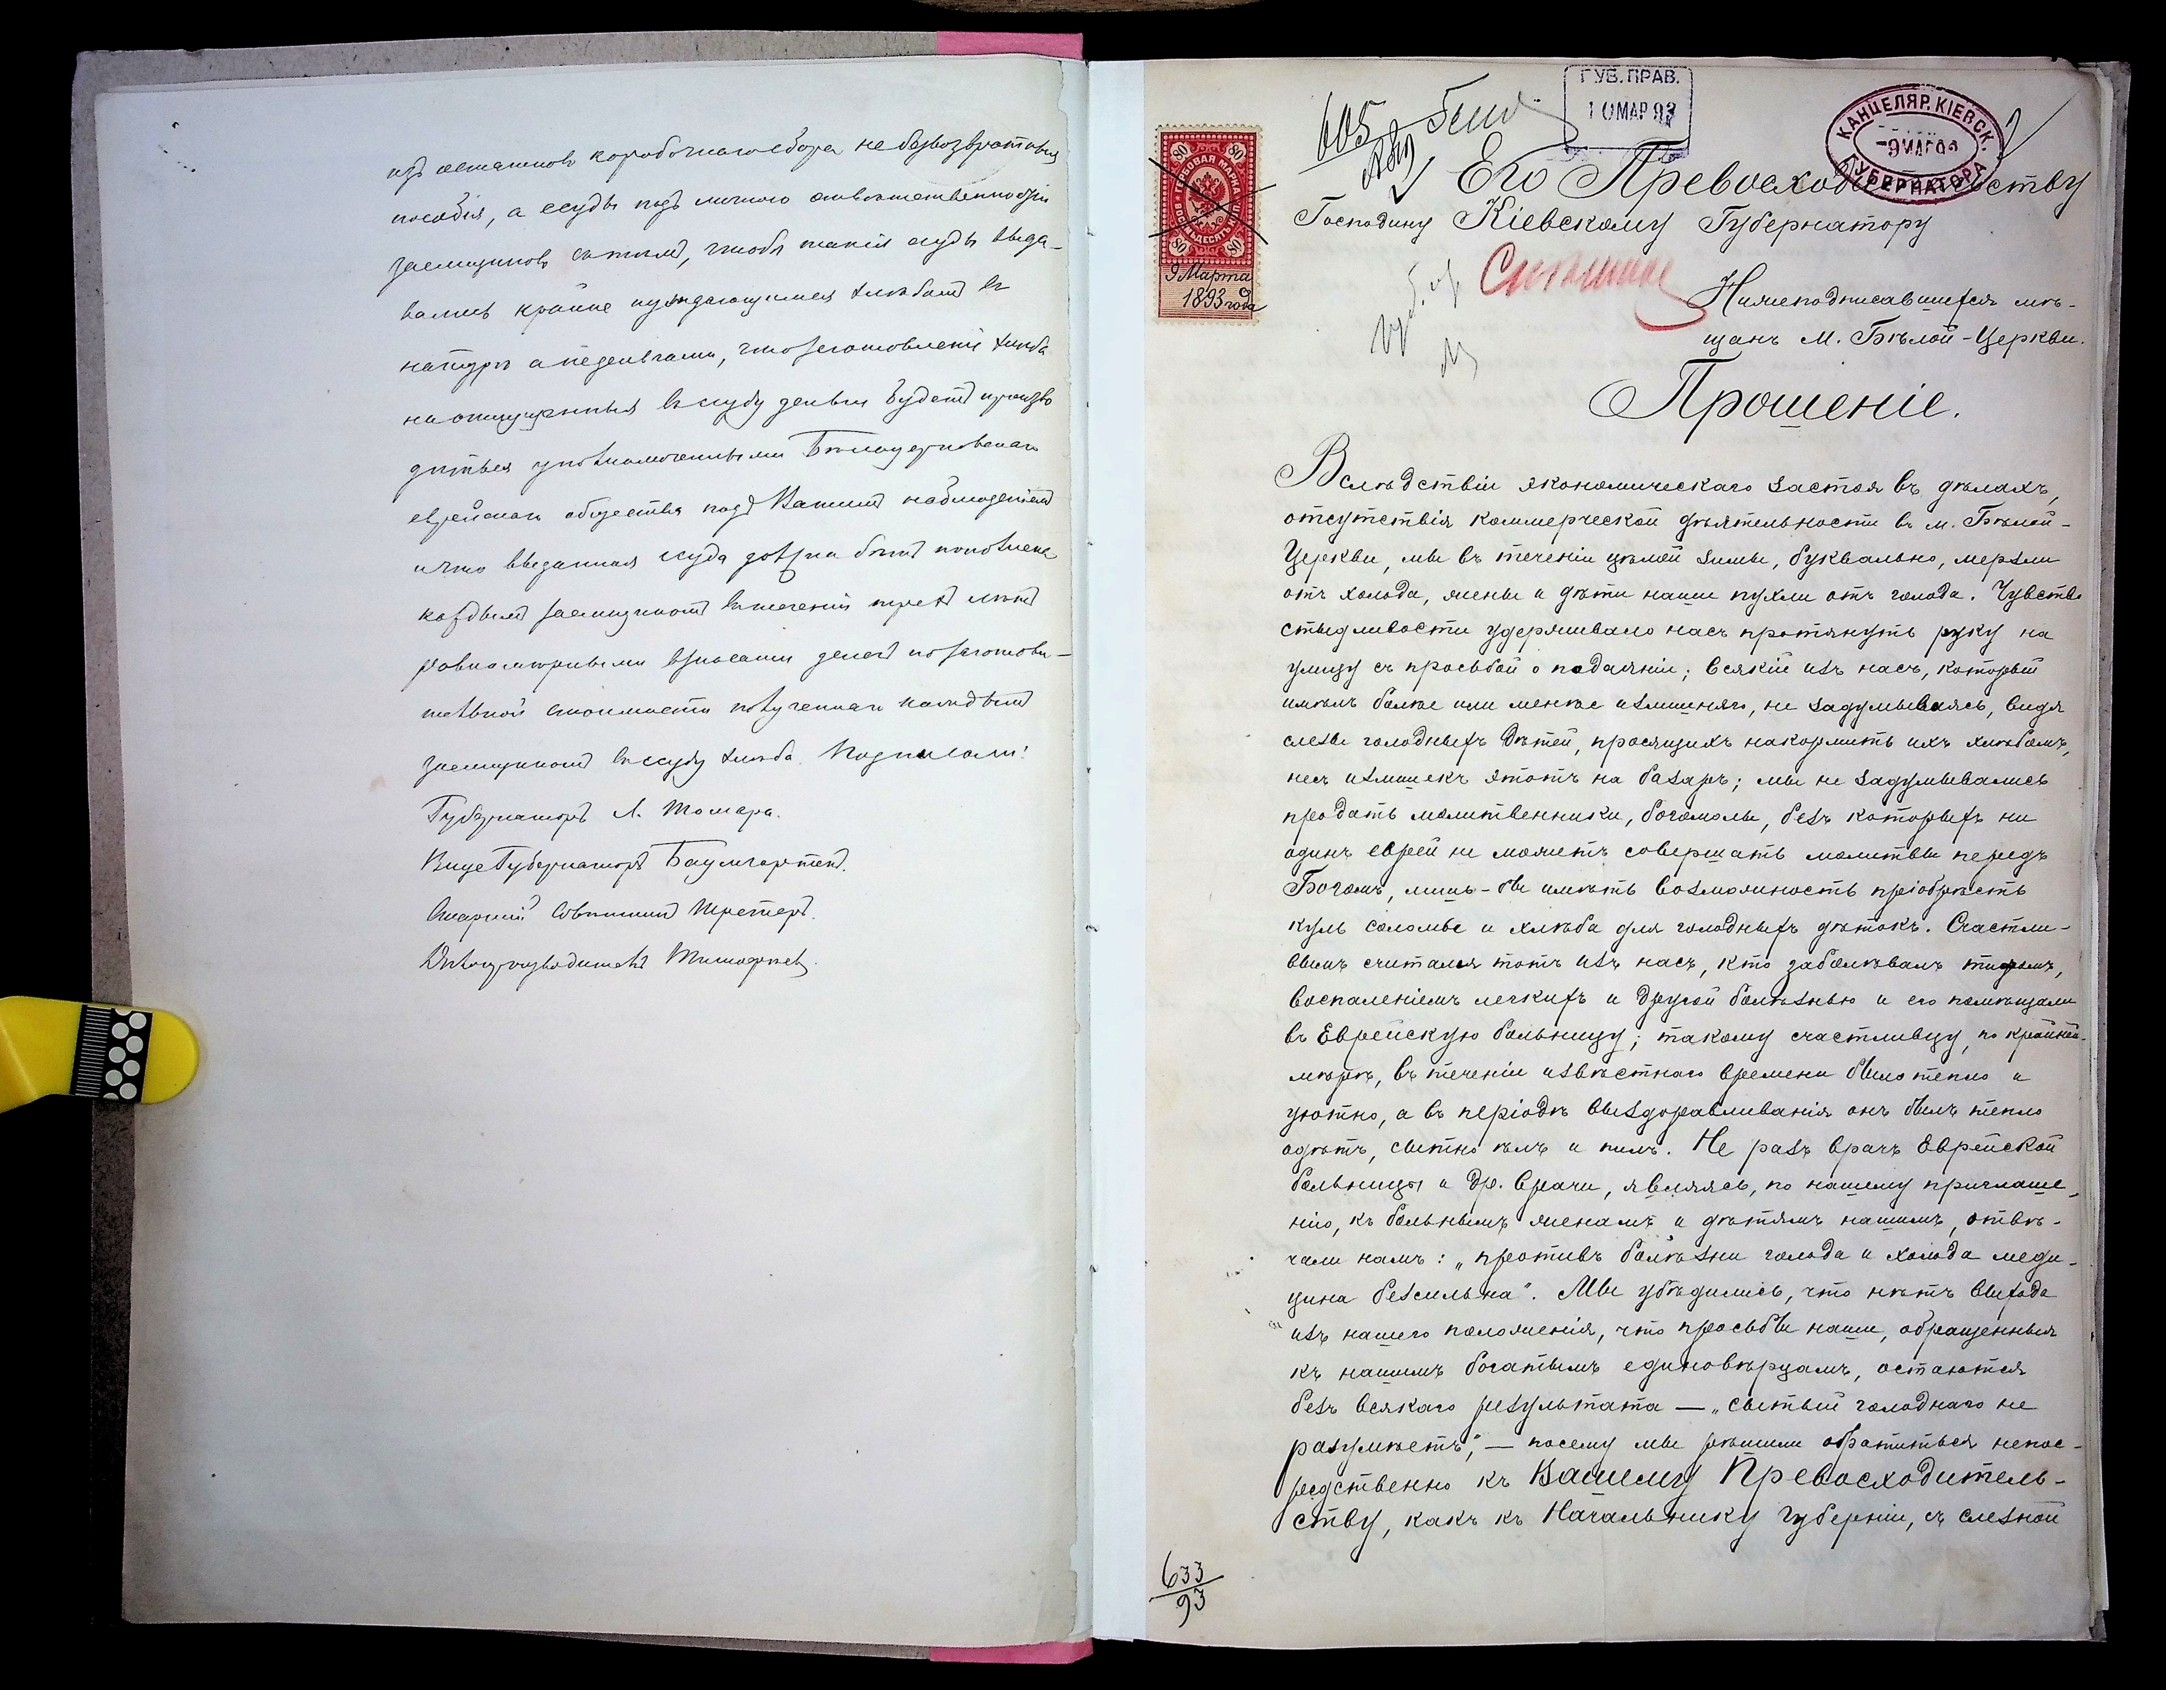 изъ остатковъ коробочнаго сбора не безвозвратныя
пособія, а ссуды подъ личною отвѣтственностію
заемщиковъ съ тѣмъ, чтобы такія ссуды выда-
вались крайне нуждающимся хлѣбомъ въ
натурѣ а не деньгами, что заготовленіе хлѣба
на отпущенныя въ ссуду деньги будетъ произво
диться уполномоченными Бѣлоцерковскаго
еврейскаго общества подъ Вашимъ наблюденіемъ
и что выданная ссуда должна быть пополнена
каждымъ заемщикомъ въ теченіи трехъ лѣтъ
равномѣрными взносами денегъ по заготови-
тельной стоимости полученнаго каждымъ
заемщикомъ въ ссуду хлѣба. Подписали:
Губернаторъ Л. Томара.
Вице Губернаторъ Баумгартенъ.
Старшій Совѣтникъ
Дѣлопроизводитель Тимофѣевъ.
605
ГУБ. ПРАВ.
10 МАР 93
КАНЦЕЛЯР. КІЕВСК.
ГУБЕРНАТОРА
80 80
ГЕРБОВАЯ МАРКА
ВОСЕМЬДЕСЯТЪ КОП.
80 80
9 Марта
1893 года
2
Его Превосходительству
Господину Кіевскому Губернатору
Нижеподписавшихся мѣ-
щанъ м. Бѣлой-Церкви.
Прошеніе.
Вслѣдствіи экономическаго застоя въ дѣлахъ,
отсутствія коммерческой дѣятельности въ м. Бѣлой-
Церкви, мы въ теченіи цѣлой зимы, буквально, мерзли
отъ холода, жены и дѣти наши пухли отъ голода. Чувство
стыдливости удерживало насъ протянуть руку на
улицу съ просьбой о подаяніи; всякій изъ насъ, который
имѣлъ болѣе или менѣе излишняго, не задумываясь, видя
слезы голодныхъ дѣтей, просящихъ накормить ихъ хлѣбомъ,
несъ излишекъ этотъ на базаръ; мы не задумывались
продать молитвенники, богомолы, безъ которыхъ ни
одинъ еврей не можетъ совершать молитвы передъ
Богомъ, лишь-бы имѣть возможность пріобрѣсть
куль соломы и хлѣба для голодныхъ дѣтокъ. Счастли-
вымъ считался тотъ изъ насъ, кто заболѣвалъ тифомъ,
воспаленіемъ легкихъ и другой болѣзнью и его помѣщали
въ Еврейскую больницу; такому счастливцу, по крайней-
мѣрѣ, въ теченіи извѣстнаго времени было тепло и
уютно, а въ періодъ выздоравливанія онъ былъ тепло
одѣтъ, сытно ѣлъ и пилъ. Не разъ врачъ Еврейской
больницы и др. врачи, являясь, по нашему приглаше-
нію, къ больнымъ женамъ и дѣтямъ нашимъ, отвѣ-
чали намъ: „противъ болѣзни голода и холода меди-
цина безсильна“. Мы убѣдились, что нѣтъ выхода
изъ нашего положенія, что просьбы наши, обращенныя
къ нашимъ богатымъ единовѣрцамъ, остаются
безъ всякаго результата — „сытый голоднаго не
разумѣетъ“, — посему мы рѣшили обратиться непос-
редственно къ Вашему Превосходитель-
ству, какъ къ Начальнику губерніи, съ слезной
633
93